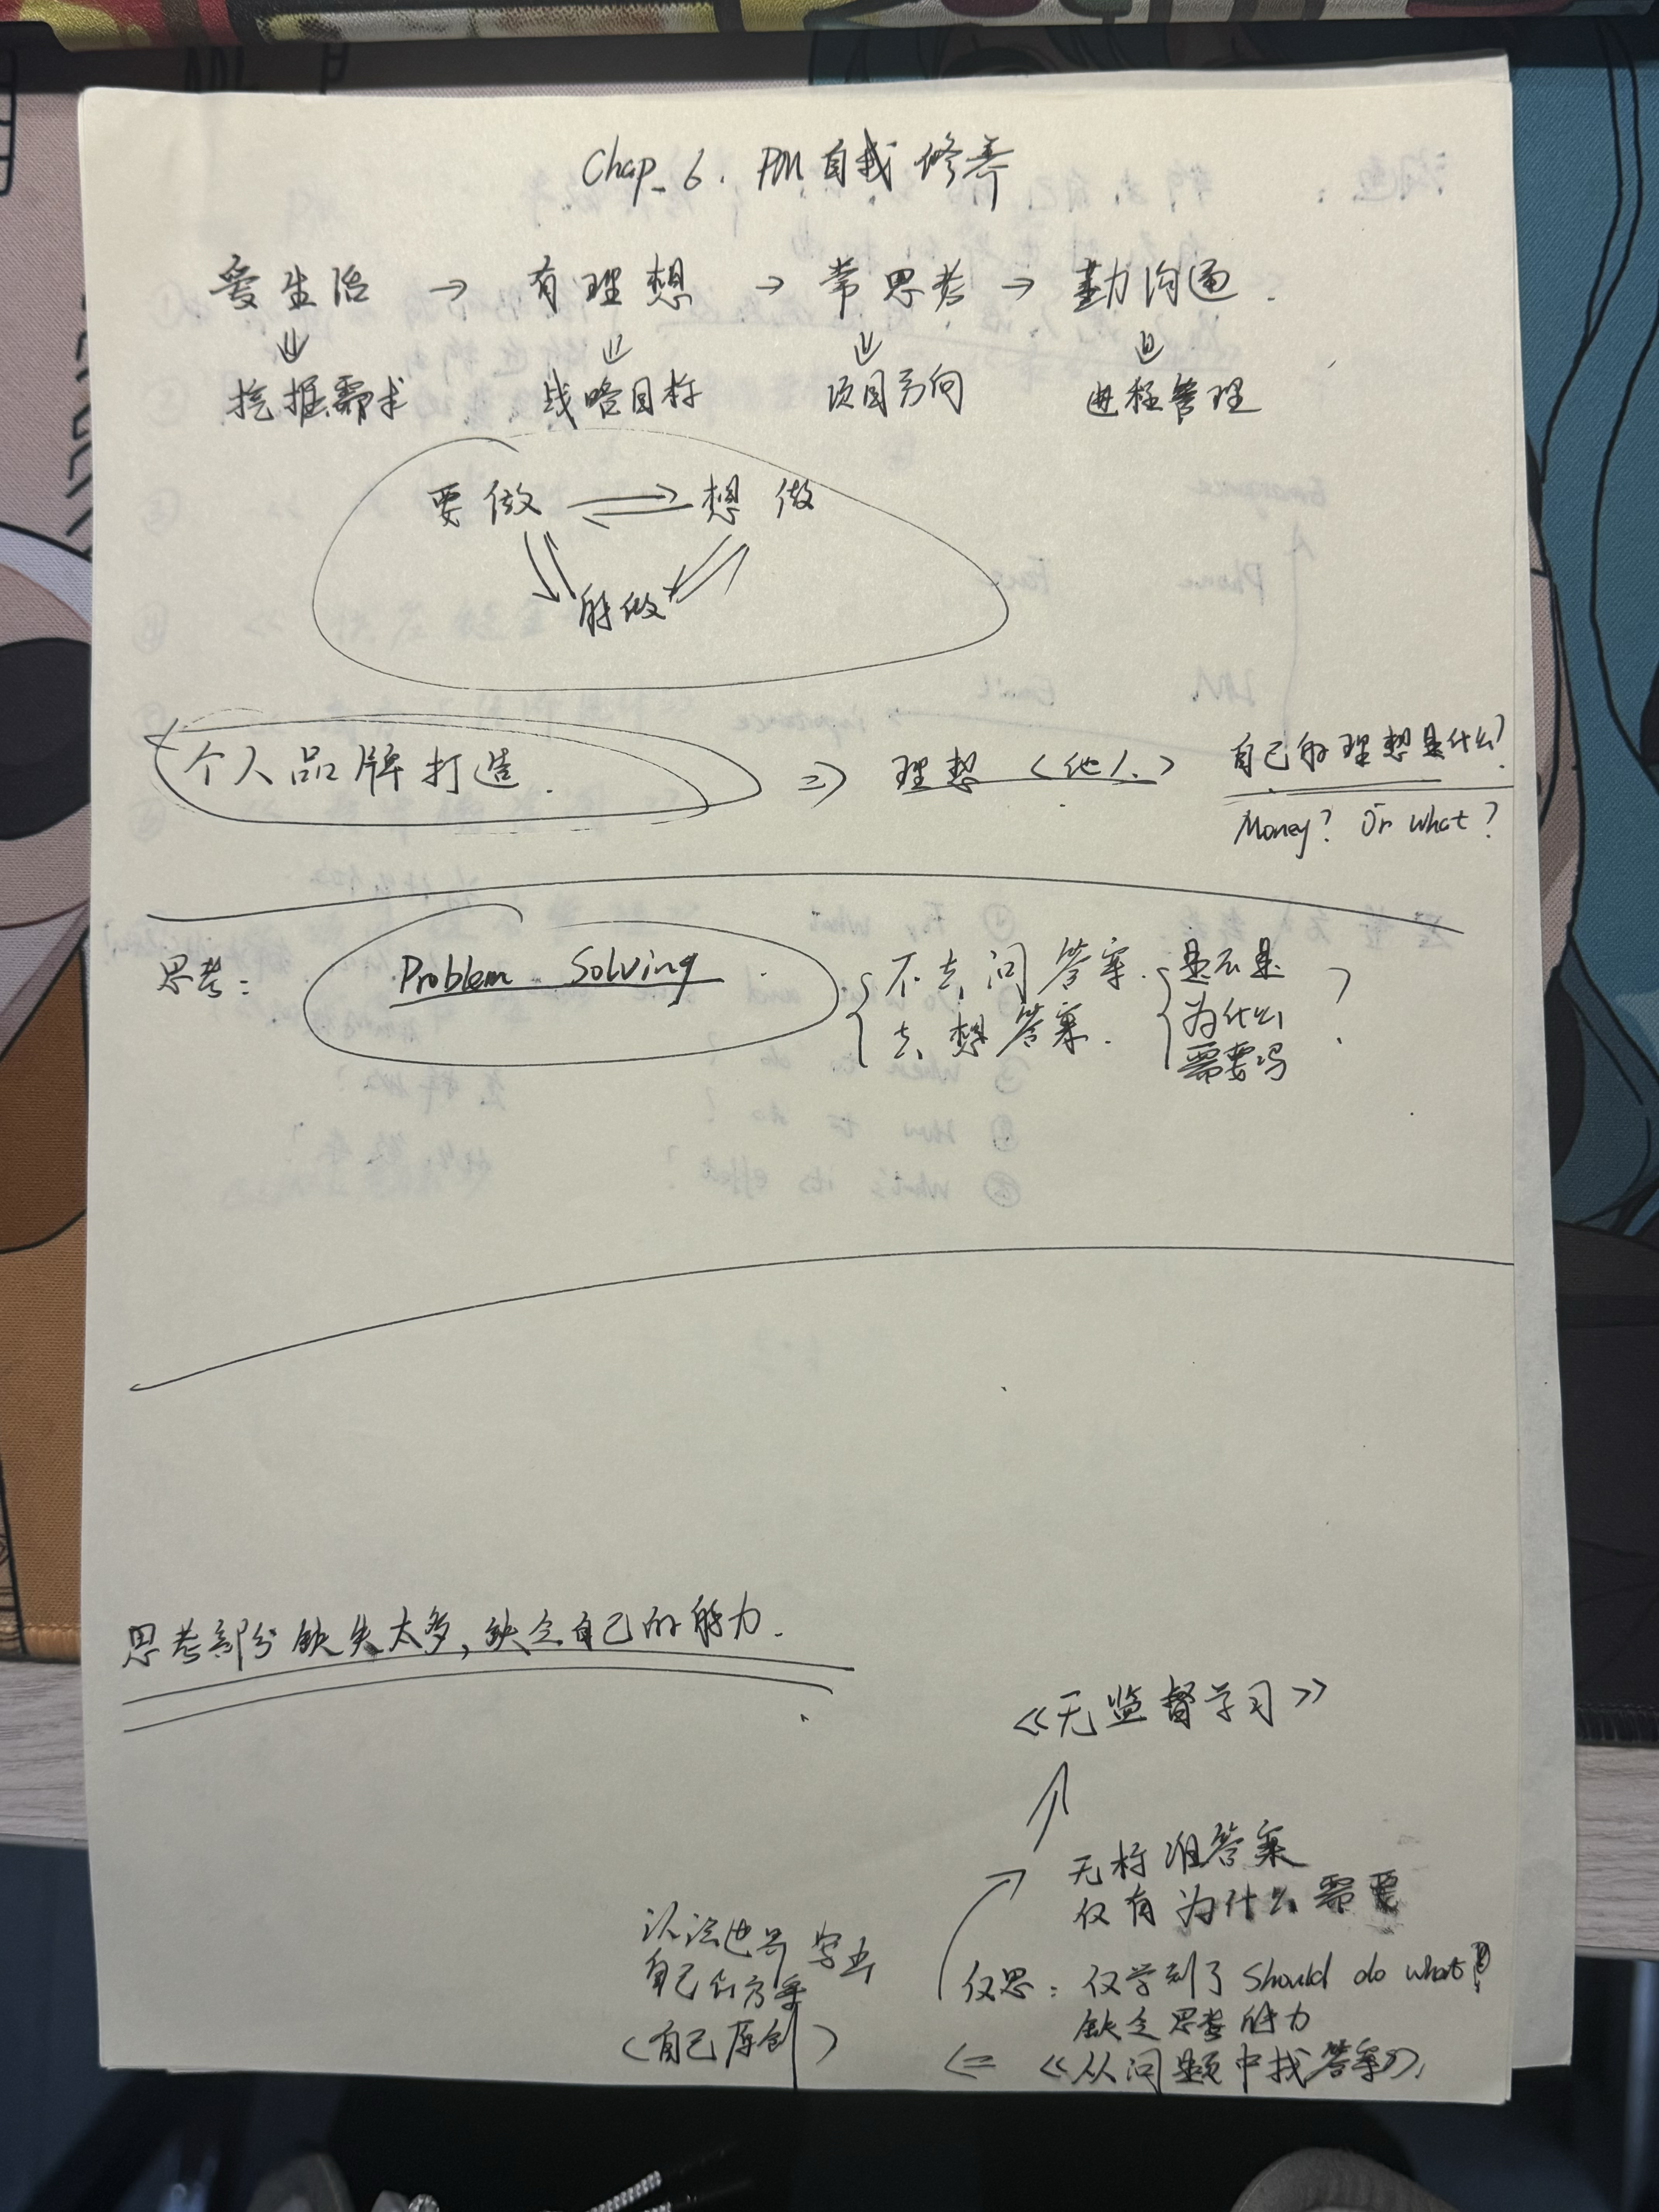 Chap_6. PM自我修养
爱生活 → 有理想 → 常思考 → 勤沟通.
挖掘需求 战略目标 项目方向 进程管理
要做 想做
能做
个人品牌打造. ⇒ 理想 <他人> 自己的理想是什么?
Money? Or what?
思考: Problem Solving
不去问答案. 是不是
去想答案. 为什么 ?
需要吗
思考部分缺失太多, 缺乏自己的能力.
《无监督学习》
无标准答案
仅有为什么需要
仅思: 仅学到了 should do what?
缺乏思考能力
<= 《从问题中找答案》
自己的方案
(自己原创)